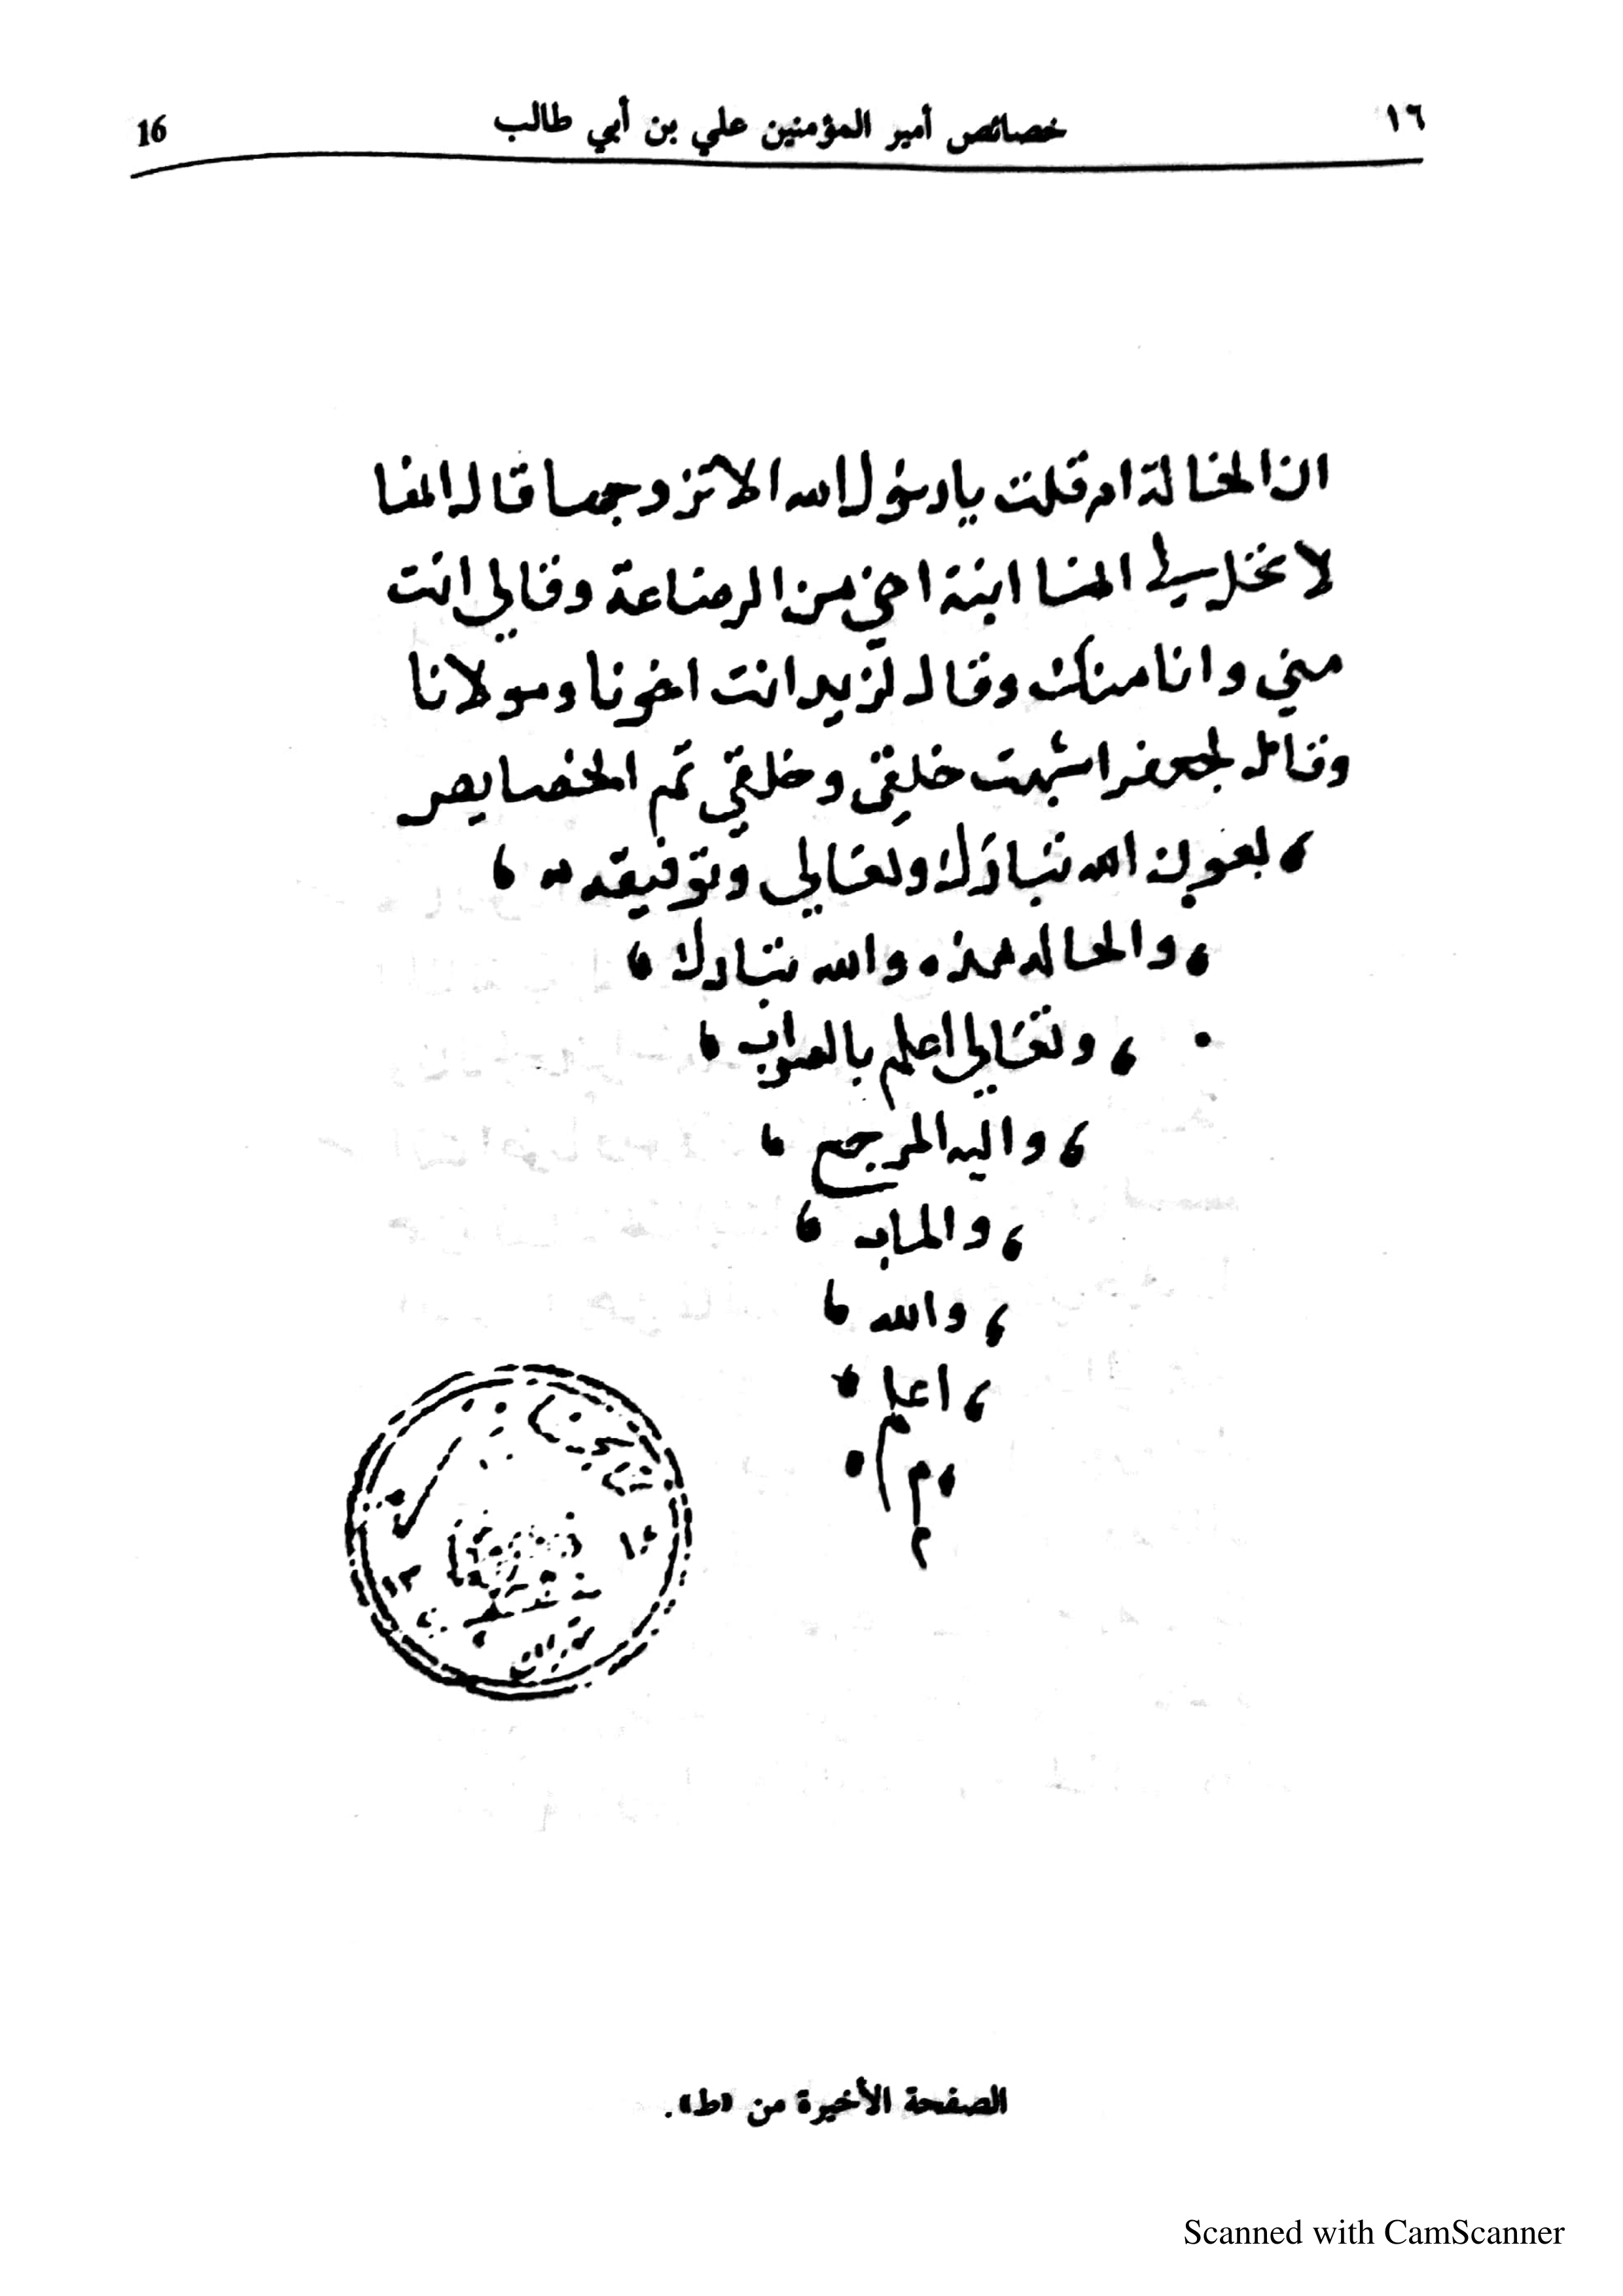 ١٦
خصائص أمير المؤمنين علي بن أبي طالب
16
ان الخالة ام قلت يا رسول الله الا تزوجها قال انها
لا تحل لي انها ابنة اخي من الرضاعة وقال لي انت
مني وانا منك وقال لزيد انت اخونا ومولانا
وقال لجعفر اشبهت خلقي وخلقي تم الخصايص
بعون الله تبارك وتعالي وتوفيقه
والحاله هذه والله تبارك
وتعالي اعلم بالصواب
واليه المرجع
والماب
والله
اعلم
م
م
الصفحة الأخيرة من «ط».
Scanned with CamScanner